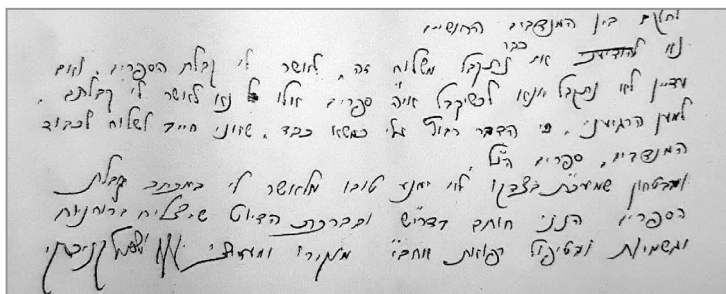 ולחלקם בין המנדבים החושיים
נא להודיעני אם נתקבל כבר משלוח זה, לאשר לי קבלת הספרים, ואם
עדיין לא נתקבל יואנא לכשיקבל אי״ה ספרים אלו נא לאשר לי קבלתם,
למען הרגיעני, כי הדבר רבוץ עלי כמשא כבד, שהנני חייב לשלוח לכבוד
המנדבים, ספרים הנ״ל,
ובטחון שמעכ״ת בצדקו לא ימנע טובו מלאשר לי במכתב קבלת
הספרים הנני חותם בדרי״ש ובברכת הדיוט שיצליח ברוחניות
ובגשמיות ובטיפול רפואת אוהבי״ מוקירו ומעריצו